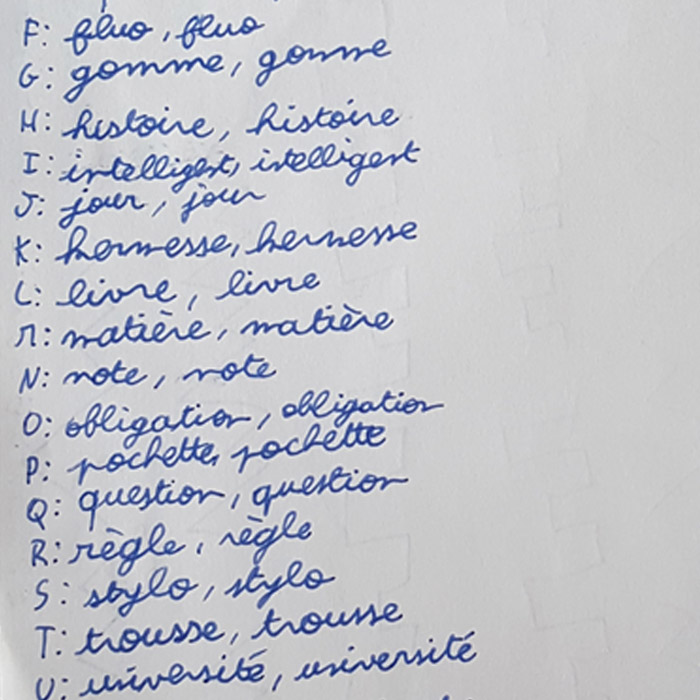 F: fluo, fluo
G: gomme, gomme
H: histoire, histoire
I: intelligent, intelligent
J: jour, jour
K: kermesse, kermesse
L: livre, livre
M: matière, matière
N: note, note
O: obligation, obligation
P: pochette, pochette
Q: question, question
R: règle, règle
S: stylo, stylo
T: trousse, trousse
U: université, université